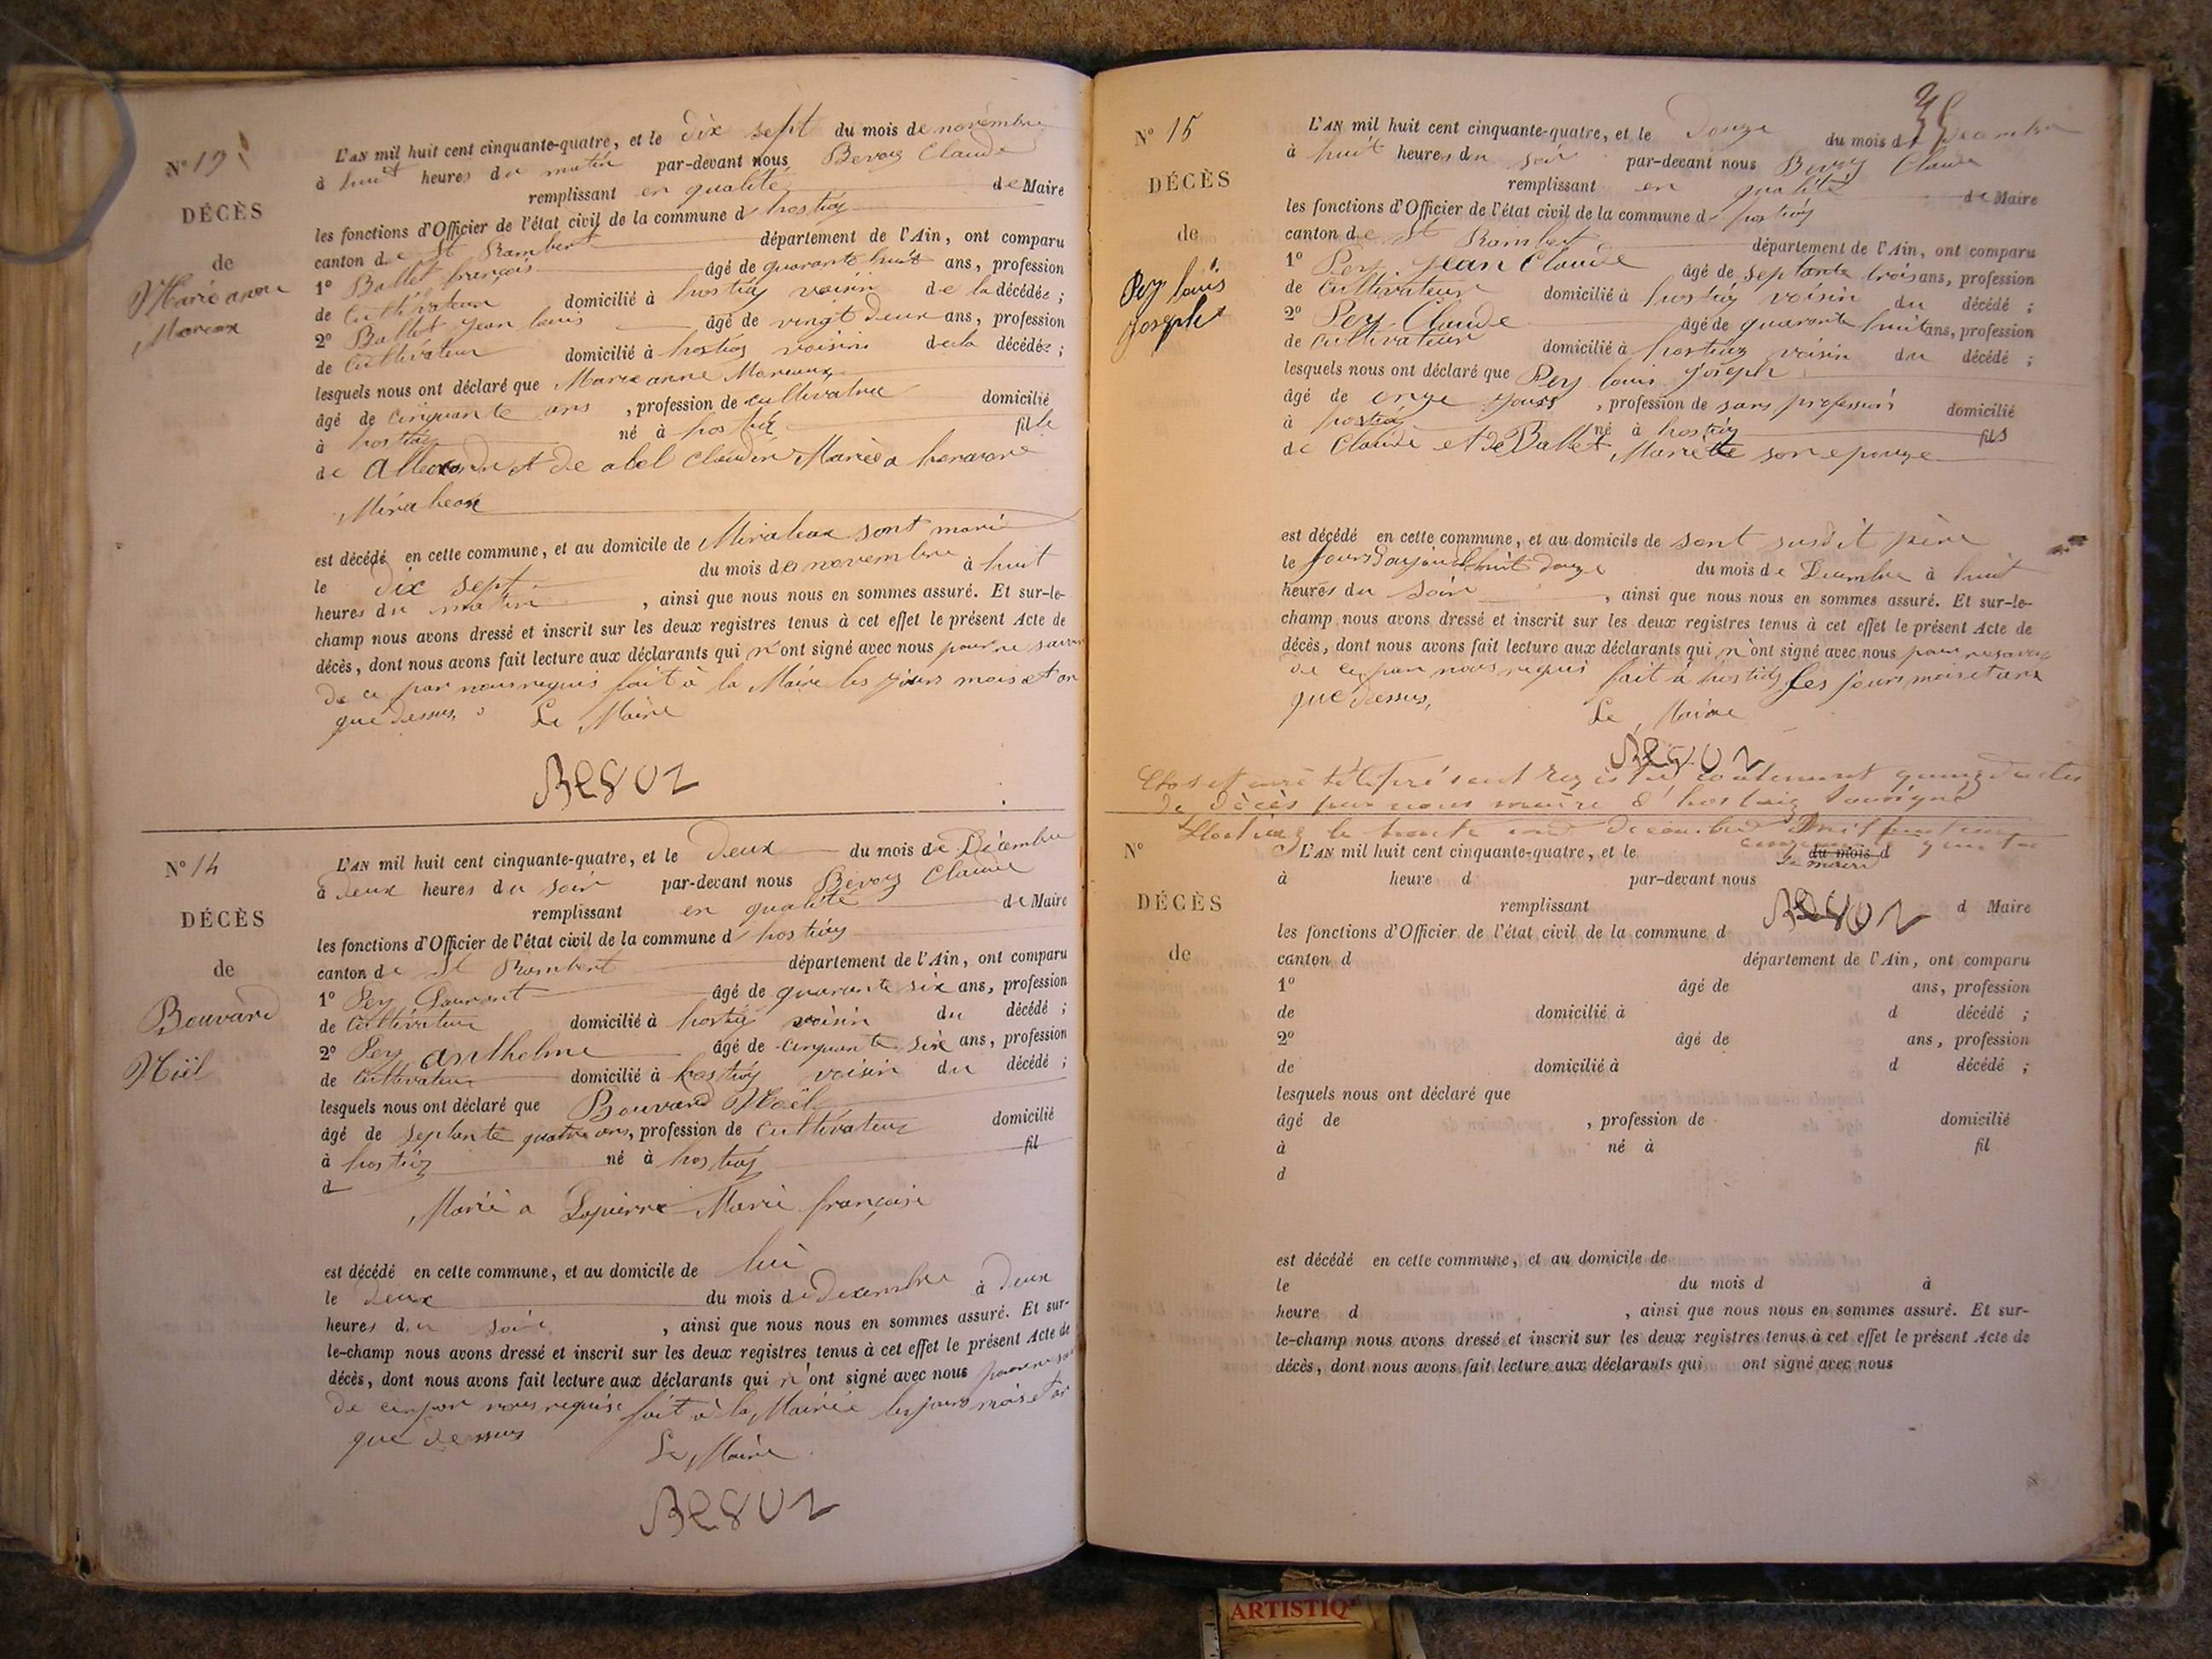 N° 13
DÉCÈS
de
Marie anne
Moreaux
L'AN mil huit cent cinquante-quatre, et le dix sept du mois de novembre
à huit heures du matin par-devant nous Bevoz Claude
remplissant en qualité de Maire
les fonctions d'Officier de l'état civil de la commune d hostiaz
canton de St Rambert département de l'Ain, ont comparu
1° Ballet françois âgé de quarante huit ans, profession
de Cultivateur domicilié à hostiaz voisin de la décédée ;
2° Ballet jean louis âgé de vingt deux ans, profession
de Cultivateur domicilié à hostiaz voisin de la décédée ;
lesquels nous ont déclaré que Marie anne Moreaux
âgé de cinquante ans , profession de cultivatrice domicilié
à hostiaz né à hostiaz fille
de Allexandre et de abel Claudine Mariée a
Mirabeau
est décédé en cette commune, et au domicile de Mirabeau sont marie
le dix sept du mois de novembre à huit
heures du matin , ainsi que nous nous en sommes assuré. Et sur-le-
champ nous avons dressé et inscrit sur les deux registres tenus à cet effet le présent Acte de
décès, dont nous avons fait lecture aux déclarants qui n'ont signé avec nous pour ne savoir
de ce par nous requis fait à la Mairie les jours mois et an
que dessus
Le Maire
Bevoz
N° 14
DÉCÈS
de
Bouvard
Noël
L'AN mil huit cent cinquante-quatre, et le deux du mois de Décembre
à deux heures du soir par-devant nous Bevoz Claude
remplissant en qualité de Maire
les fonctions d'Officier de l'état civil de la commune d hostiaz
canton de St Rambert département de l'Ain, ont comparu
1° Pey Laurent âgé de quarante six ans, profession
de Cultivateur domicilié à hostiaz voisin du décédé ;
2° Pey anthelme âgé de cinquante six ans, profession
de Cultivateur domicilié à hostiaz voisin du décédé ;
lesquels nous ont déclaré que Bouvard Noël
âgé de septante quatre ans, profession de Cultivateur domicilié
à hostiaz né à hostiaz fil
d
Marié a Lapierre Marie françoise
est décédé en cette commune, et au domicile de lui
le deux du mois de decembre à deux
heures du soir , ainsi que nous nous en sommes assuré. Et sur-
le-champ nous avons dressé et inscrit sur les deux registres tenus à cet effet le présent Acte de
décès, dont nous avons fait lecture aux déclarants qui n'ont signé avec nous pour ne
de ce par nous requis fait à la Mairie les jours mois et an
que dessus
Le Maire
Bevoz
N° 15
DÉCÈS
de
Pey louis
joseph
L'AN mil huit cent cinquante-quatre, et le Douze du mois d Decembre
à huit heures du soir par-devant nous Bevoz Claude
remplissant en qualité de Maire
les fonctions d'Officier de l'état civil de la commune d hostiaz
canton de St Rambert département de l'Ain, ont comparu
1° Pey jean Claude âgé de septante trois ans, profession
de Cultivateur domicilié à hostiaz voisin du décédé ;
2° Pey Claude âgé de quarante huit ans, profession
de Cultivateur domicilié à hostiaz voisin du décédé ;
lesquels nous ont déclaré que Pey louis joseph
âgé de onze jours , profession de sans profession domicilié
à hostiaz né à hostiaz fils
de Claude et de Ballet Mariette son epouze
est décédé en cette commune, et au domicile de sont susdit père
le jours daujourdhuit douze du mois de Decembre à huit
heures du soir , ainsi que nous nous en sommes assuré. Et sur-le-
champ nous avons dressé et inscrit sur les deux registres tenus à cet effet le présent Acte de
décès, dont nous avons fait lecture aux déclarants qui n'ont signé avec nous pour ne savoir
de ce par nous requis fait à hostiaz les jours mois et an
que dessus,
Le Maire
Bevoz
Clos et arrêté le présent registre contenant quinze actes
de décès par nous maire d'hostiaz soussigné
Hostiaz le trente un decembre mil huit cent
cinquante quatre
Le maire
Bevoz
N°
DÉCÈS
de
L'AN mil huit cent cinquante-quatre, et le du mois d
à heure d par-devant nous
remplissant d Maire
les fonctions d'Officier de l'état civil de la commune d
canton d département de l'Ain, ont comparu
1° âgé de ans, profession
de domicilié à d décédé ;
2° âgé de ans, profession
de domicilié à d décédé ;
lesquels nous ont déclaré que
âgé de , profession de domicilié
à né à fil
d
est décédé en cette commune, et au domicile de
le du mois d à
heure d , ainsi que nous nous en sommes assuré. Et sur-
le-champ nous avons dressé et inscrit sur les deux registres tenus à cet effet le présent Acte de
décès, dont nous avons fait lecture aux déclarants qui ont signé avec nous
ARTISTIQ